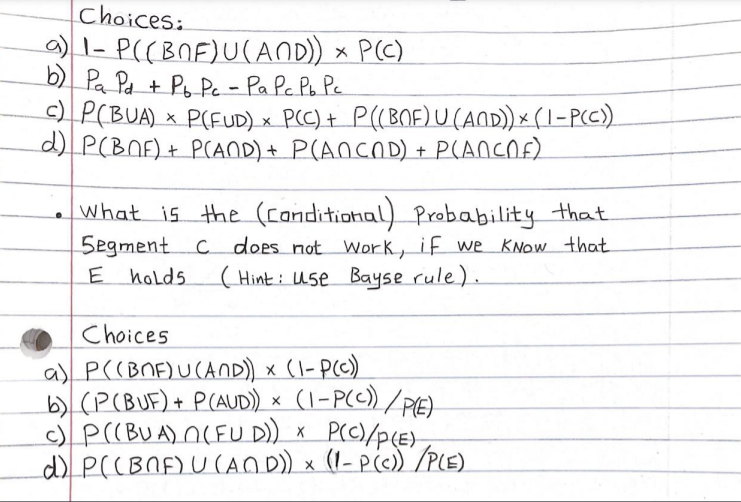 Choices:
a) 1- P((B∩F)∪(A∩D)) × P(C)
b) Pa Pd + Pb Pc - Pa Pc Pb Pc
c) P(B∪A) × P(F∪D) × P(C) + P((B∩F)∪(A∩D))×(1-P(C))
d) P(B∩F) + P(A∩D) + P(A∩C∩D) + P(A∩C∩F)
• What is the (Conditional) Probability that
Segment C does not work, if we know that
E holds (Hint: use Bayse rule).
Choices
a) P((B∩F)∪(A∩D)) × (1-P(C))
b) (P(B∪F) + P(A∪D)) × (1-P(C)) / P(E)
c) P((B∪A)∩(F∪D)) × P(C)/P(E)
d) P((B∩F)∪(A∩D)) × (1-P(C)) /P(E)